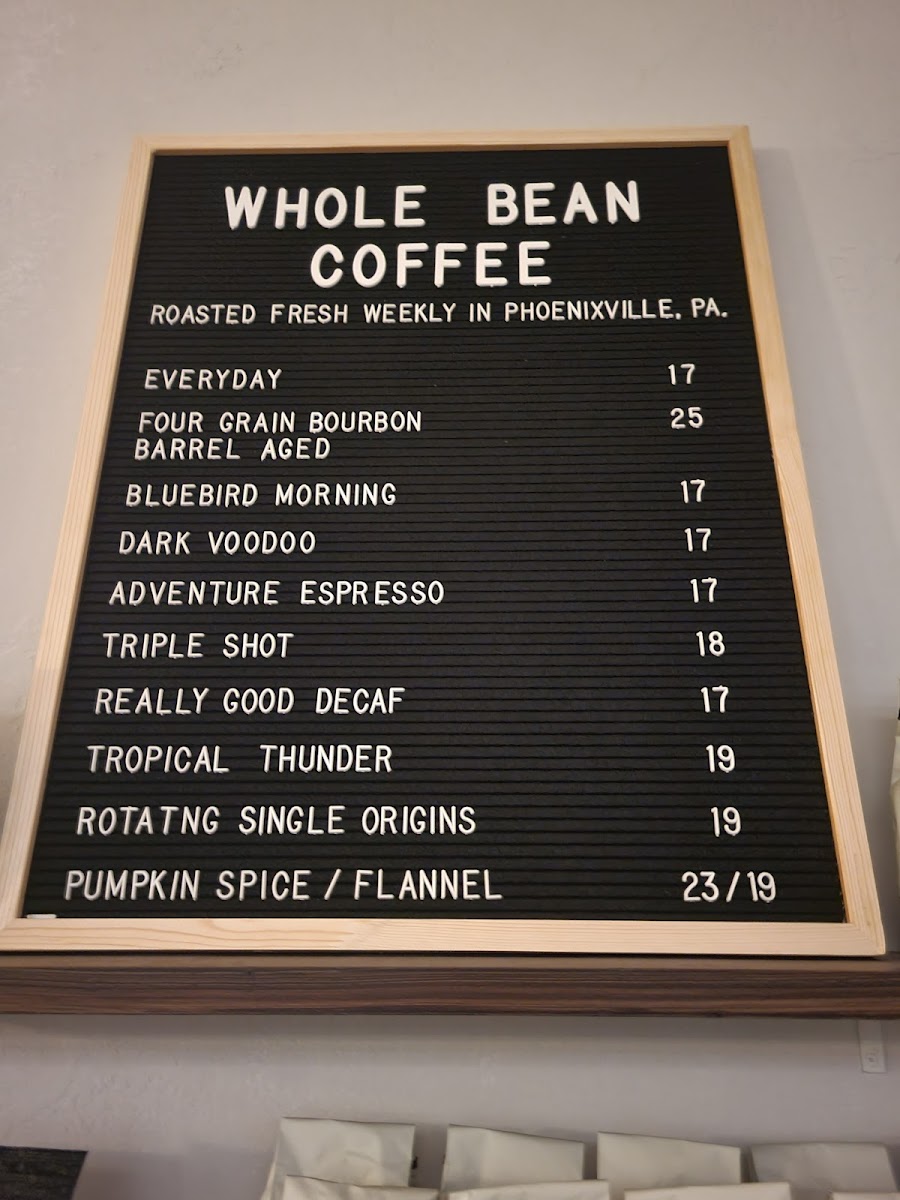 WHOLE BEAN
COFFEE
ROASTED FRESH WEEKLY IN PHOENIXVILLE, PA.
EVERYDAY 17
FOUR GRAIN BOURBON 25
BARREL AGED
BLUEBIRD MORNING 17
DARK VOODOO 17
ADVENTURE ESPRESSO 17
TRIPLE SHOT 18
REALLY GOOD DECAF 17
TROPICAL THUNDER 19
ROTATNG SINGLE ORIGINS 19
PUMPKIN SPICE / FLANNEL 23/19